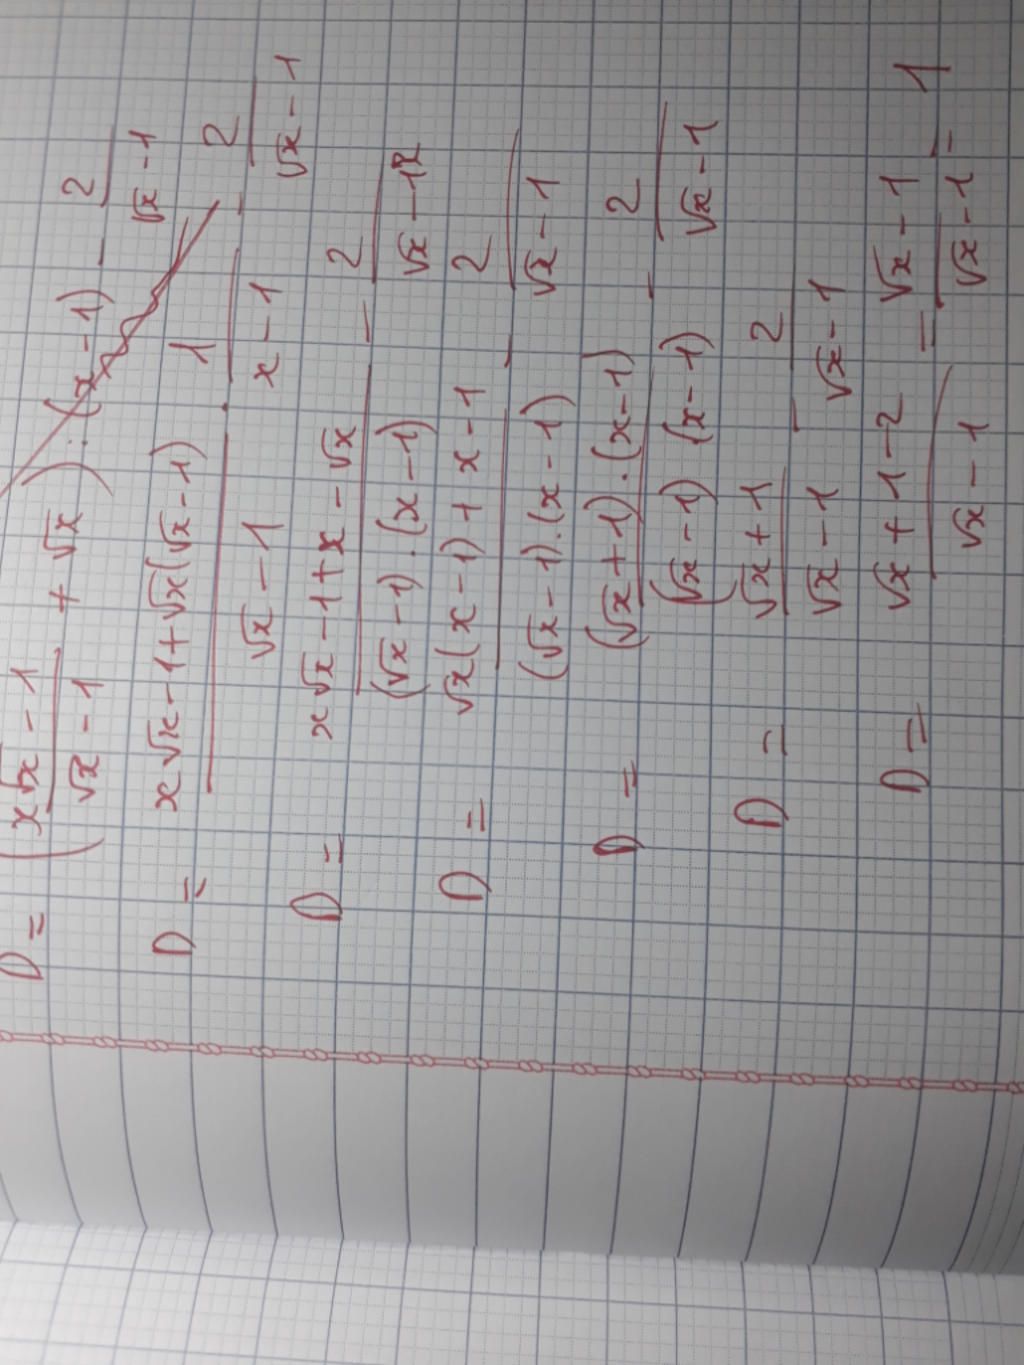 D = ( (x√x - 1)/(√x - 1) + √x ) : (x - 1) - 2/(√x - 1)
D = (x√x - 1 + √x(√x - 1))/(√x - 1) · 1/(x - 1) - 2/(√x - 1)
D = (x√x - 1 + x - √x)/((√x - 1).(x - 1)) - 2/(√x - 1)
D = (√x(x - 1) + x - 1)/((√x - 1).(x - 1)) - 2/(√x - 1)
D = ((√x + 1).(x - 1))/((√x - 1) (x - 1)) - 2/(√x - 1)
D = (√x + 1)/(√x - 1) - 2/(√x - 1)
D = (√x + 1 - 2)/(√x - 1) = (√x - 1)/(√x - 1) = 1